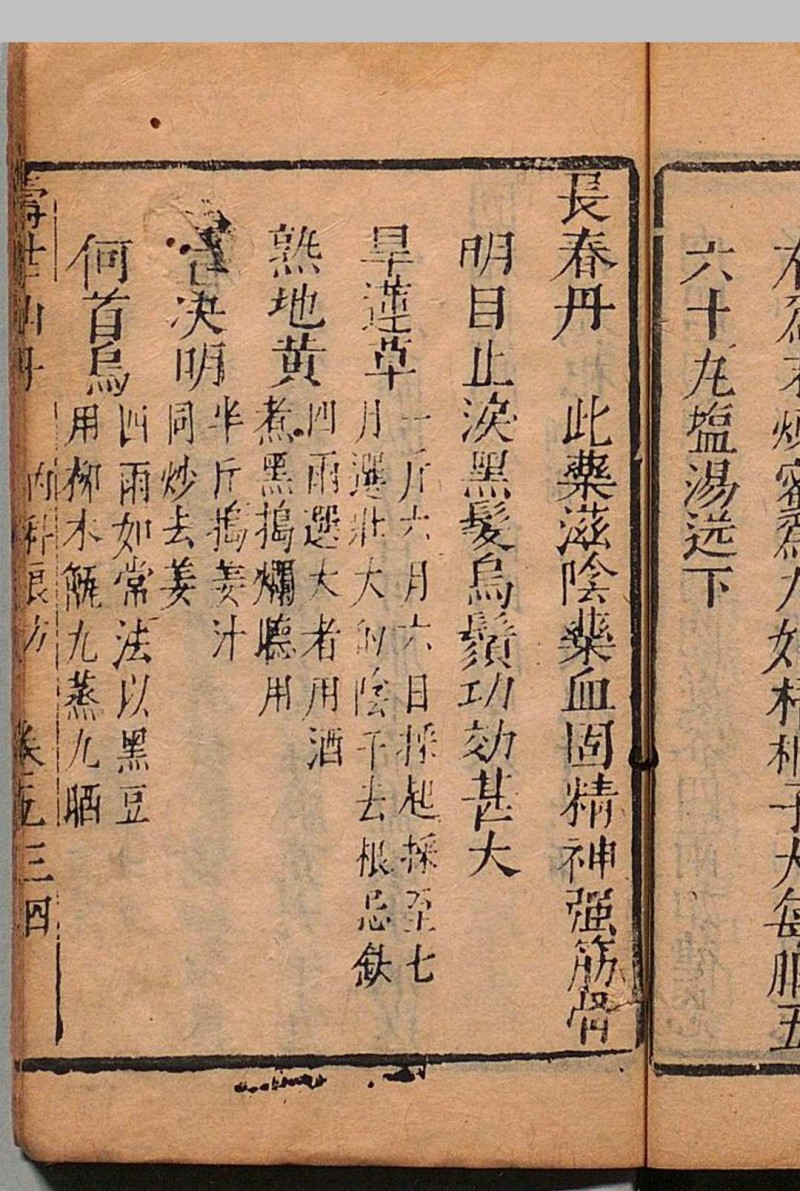 右為末煉蜜為丸如梧桐子大每服五
六十丸塩湯送下
長春丹 此藥滋陰藥血固精神强筋骨
明目止淚黑髮烏鬚功効甚大
旱蓮草 一斤六月六日採起採至七
月選壯大的陰干去根忌鉄
熟地黄 四兩選大者用酒
煮黑搗爛聽用
決明 半斤搗姜汁
同炒去姜
何首烏 四兩如常法以黑豆
用柳木甑九蒸九晒
壽世仙丹 内科良方 卷五 三四